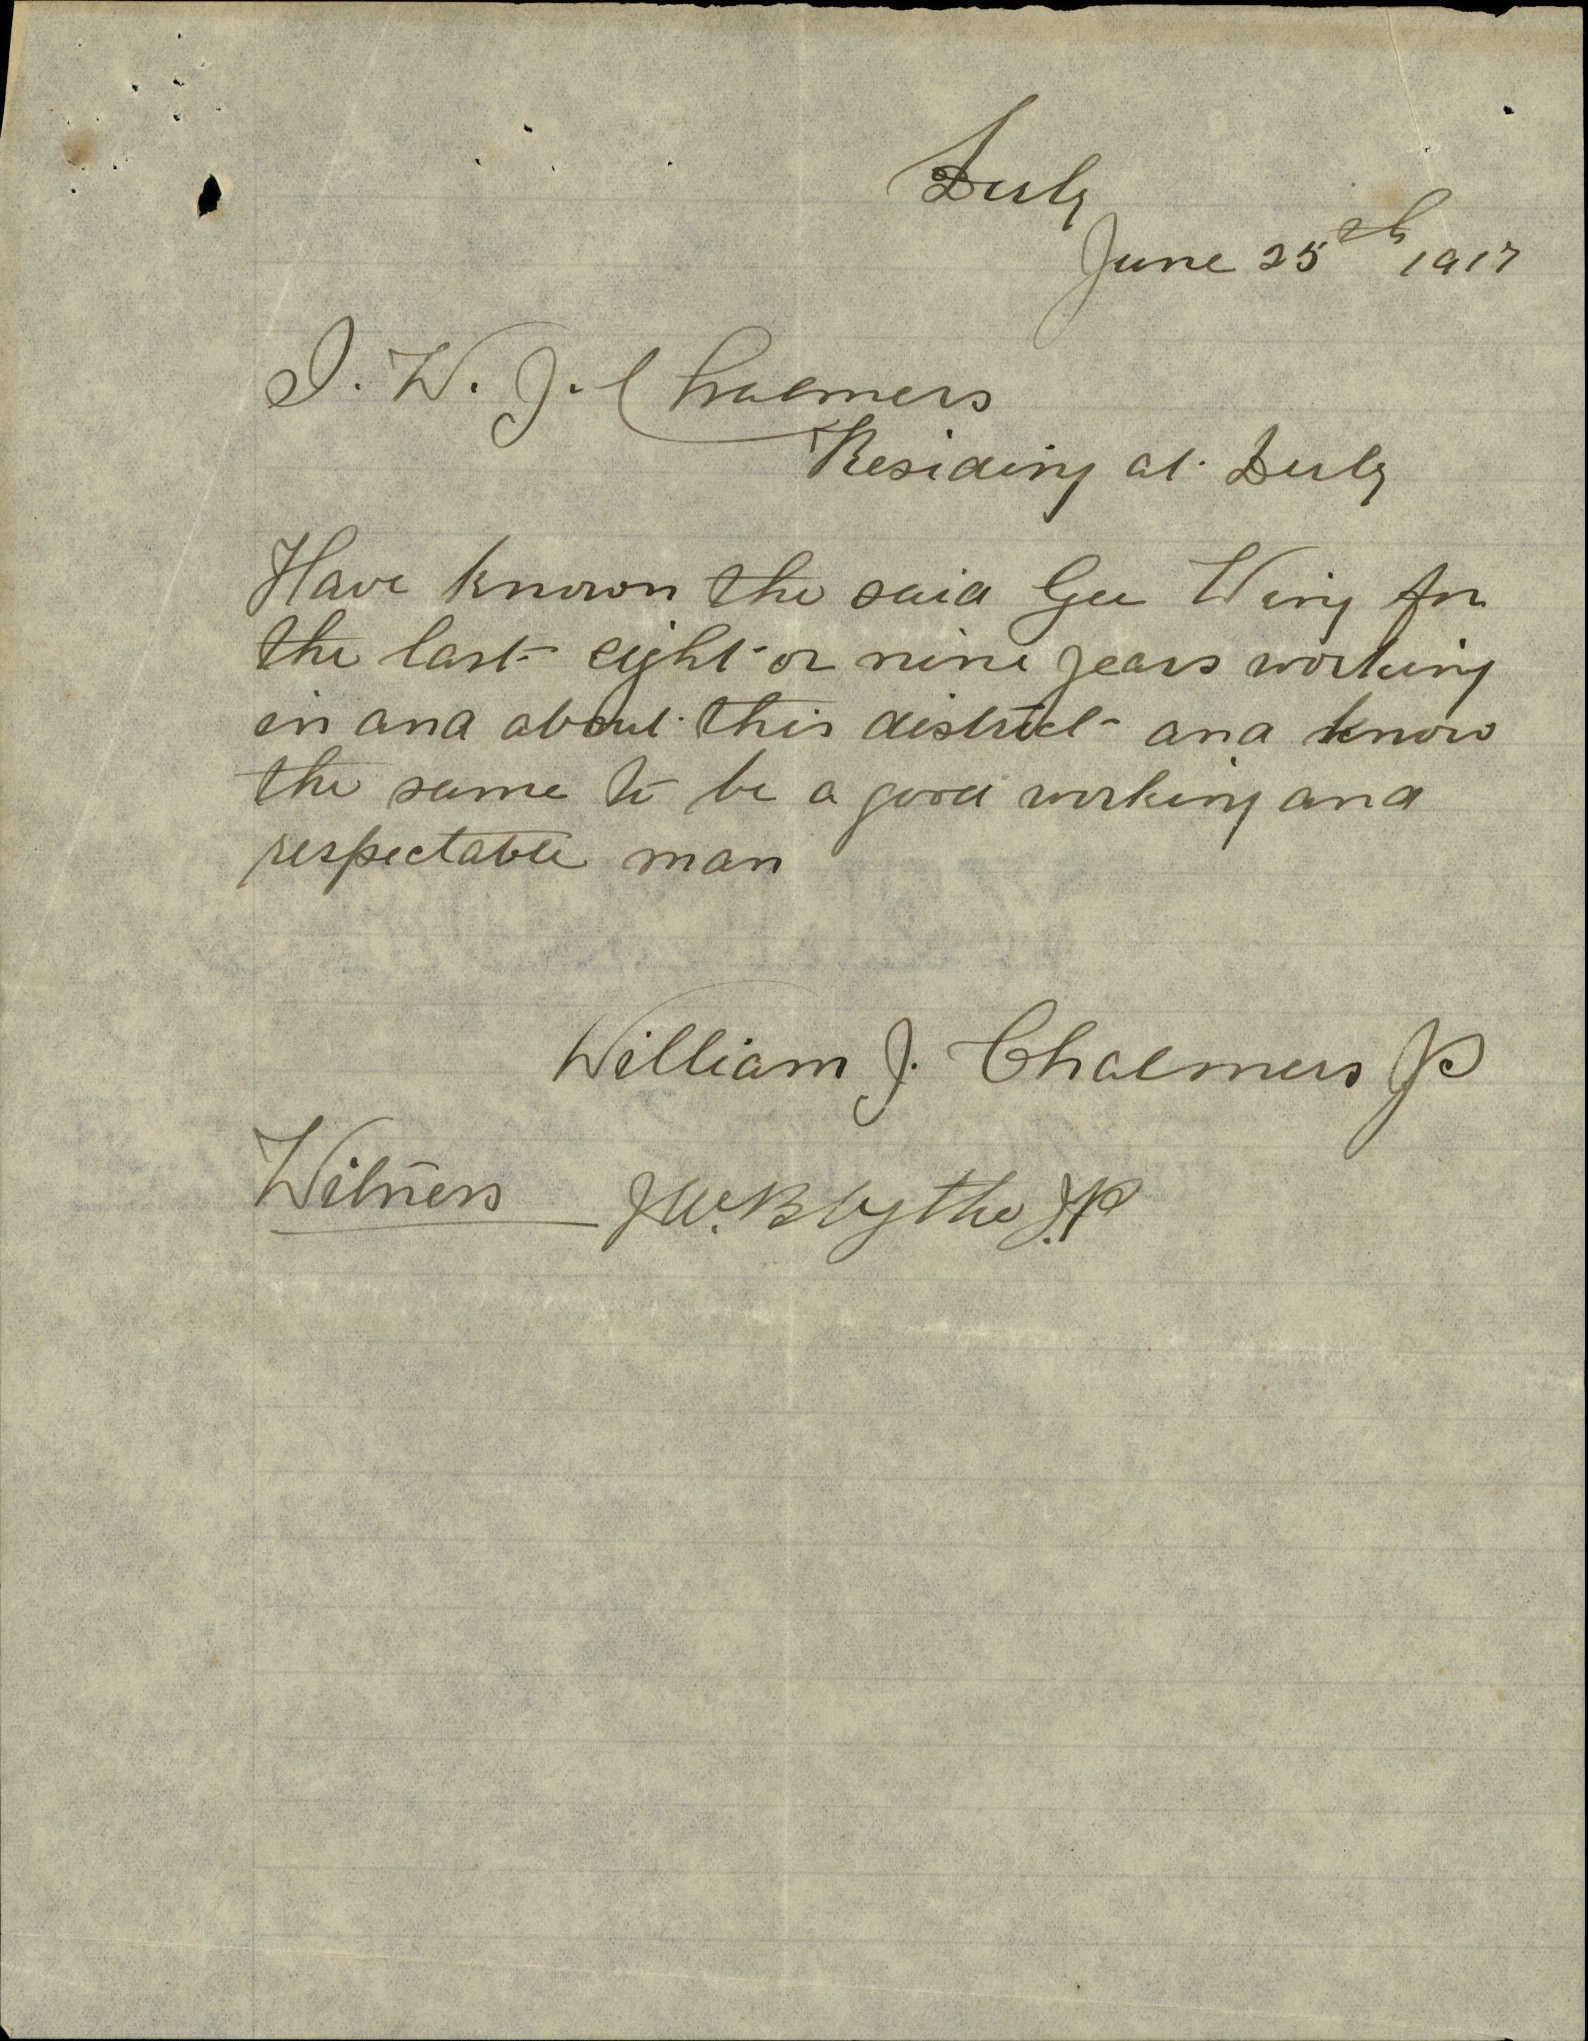 Derby
June 25th 1917
I. W. J. Chalmers
Residing at Derby
Have known the said Gee Wing for
the last eight or nine years working
in and about this district and know
the same to be a good working and
respectable man
William J. Chalmers JP
Witness J W. Blythe J.P